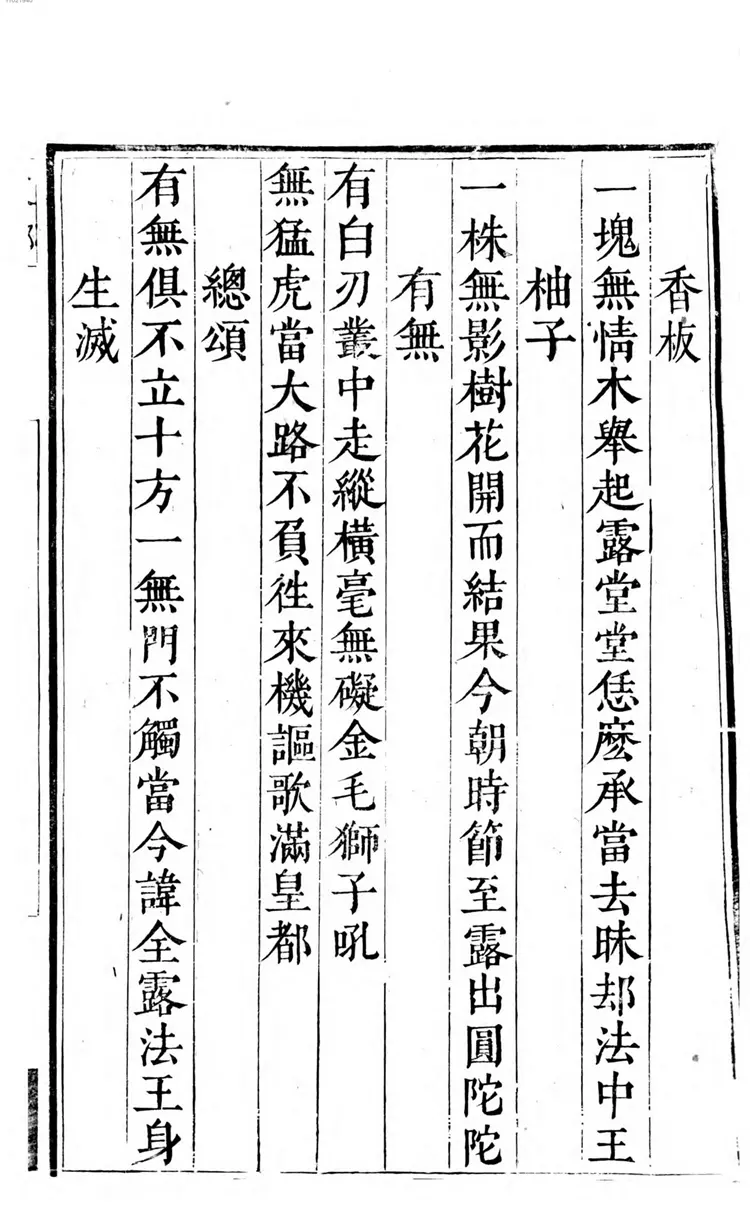 香板
一塊無情木舉起露堂堂恁麼承當去昧却法中王
柚子
一株無影樹花開而結果今朝時節至露出圓陀陀
有無
有白刃叢中走縱橫毫無礙金毛獅子吼
無猛虎當大路不負徃來機謳歌滿皇都
總頌
有無俱不立十方一無門不觸當今諱全露法王身
生滅